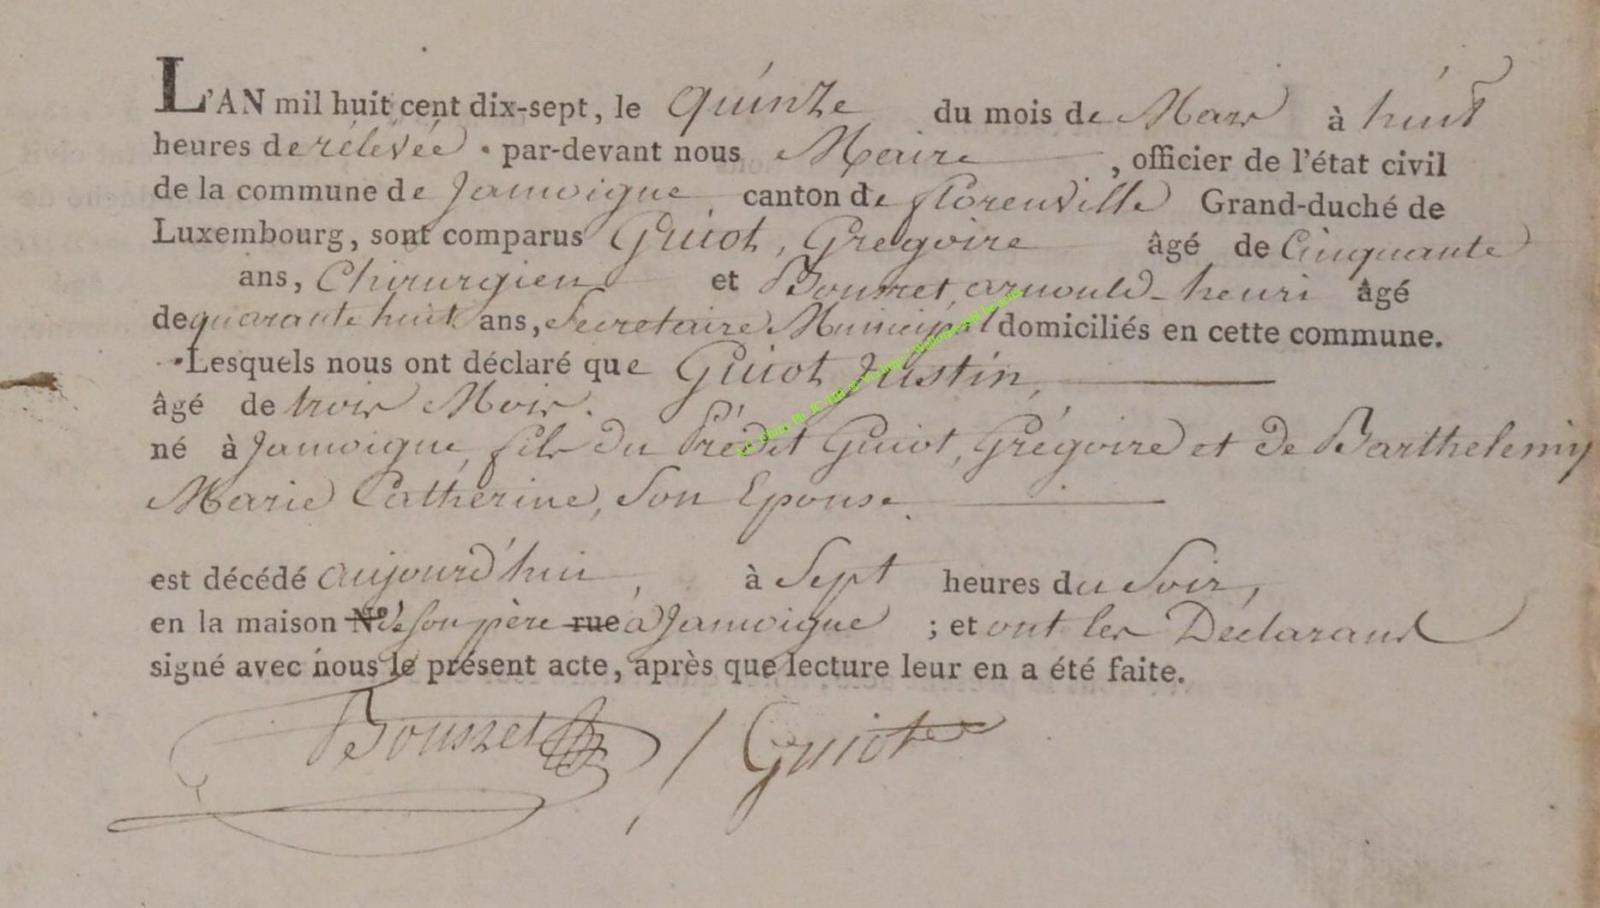 L'AN mil huit cent dix-sept, le quinze du mois de Mars à huit
heures de rélévée par-devant nous Maire, officier de l'état civil
de la commune de Jamoigne canton de florenville Grand-duché de
Luxembourg, sont comparus Guiot, Gregoire âgé de Cinquante
ans, Chirurgien et arnould-henri âgé
de quarante huit ans, Secretaire Municipal domiciliés en cette commune.
Lesquels nous ont déclaré que Guiot Justin,
âgé de trois Mois.
né à Jamoigne, fils du Prédit Guiot, Grégoire et de Barthelemy
Marie Catherine, Son Epouse.
est décédé aujourd'hui, à Sept heures du Soir,
en la maison N.º de son père rue a Jamoigne ; et ont les Déclarans
signé avec nous le présent acte, après que lecture leur en a été faite.
Guiot